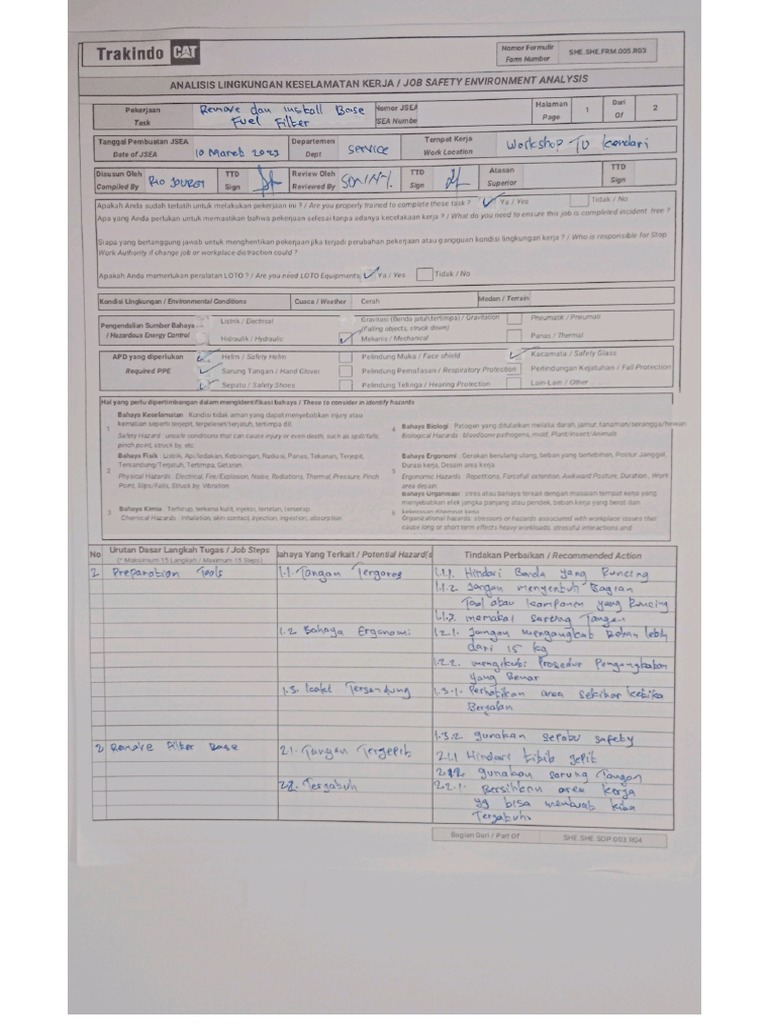 Trakindo CAT
Nomor Formulir
Form Number
SHE.SHE.FRM.005.R03
ANALISIS LINGKUNGAN KESELAMATAN KERJA / JOB SAFETY ENVIRONMENT ANALYSIS
Pekerjaan
Task
Remove dan install Base
Fuel Filter
Nomor JSEA
JSEA Number
Halaman
Page
1
Dari
Of
2
Tanggal Pembuatan JSEA
Date of JSEA
10 Maret 2023
Departemen
Dept
Service
Tempat Kerja
Work Location
Workshop TU Kendari
Disusun Oleh
Compiled By
TTD
Sign
Review Oleh
Reviewed By
TTD
Sign
Atasan
Superior
TTD
Sign
Apakah Anda sudah terlatih untuk melakukan pekerjaan ini ? / Are you properly trained to complete these task ? Ya / Yes Tidak / No
Apa yang Anda perlukan untuk memastikan bahwa pekerjaan selesai tanpa adanya kecelakaan kerja ? / What do you need to ensure this job is completed incident free ?
Siapa yang bertanggung jawab untuk menghentikan pekerjaan jika terjadi perubahan pekerjaan atau gangguan kondisi lingkungan kerja ? / Who is responsible for Stop
Work Authority if change job or workplace distraction could ?
Apakah Anda memerlukan peralatan LOTO ? / Are you need LOTO Equipments Ya / Yes Tidak / No
Kondisi Lingkungan / Environmental Conditions Cuaca / Weather Cerah Medan / Terrain
Pengendalian Sumber Bahaya
/ Hazardous Energy Control
Listrik / Electrical
Hidraulik / Hydraulic
Gravitasi (Benda jatuh/tertimpa) / Gravitation
(Falling objects, struck down)
Mekanis / Mechanical
Pneumatik / Pneumatic
Panas / Thermal
APD yang diperlukan
Required PPE
Helm / Safety Helm
Sarung Tangan / Hand Glover
Sepatu / Safety Shoes
Pelindung Muka / Face shield
Pelindung Pernafasan / Respiratory Protection
Pelindung Telinga / Hearing Protection
Kacamata / Safety Glass
Perlindungan Kejatuhan / Fall Protection
Lain-Lain / Other
Hal yang perlu dipertimbangkan dalam mengidentifikasi bahaya / These to consider in identify hazards
1
Bahaya Keselamatan : Kondisi tidak aman yang dapat menyebabkan injury atau
kematian seperti terpeleset/terjatuh, tertimpa dll.
Safety Hazard : unsafe conditions that can cause injury or even death, such as
pinch point, struck by, etc
2
Bahaya Fisik : Listrik, Api/ledakan, Kebisingan, Radiasi, Panas, Tekanan, Terjepit,
Tersandung/Terjatuh, Tertimpa, Getaran.
Physical Hazards : Electrical, Fire/Explosion, Noise, Radiations, Thermal, Pressure, Pinch
Point, Slips/Falls, Struck by, Vibration
3
Bahaya Kimia : Terhirup, terkena kulit, injeksi, tertelan, terserap
Chemical Hazards : Inhalation, skin contact, injection, ingestion, absorption
4
Bahaya Biologi : Patogen yang ditularkan melalui darah, jamur, tanaman/serangga/hewan
Biological Hazards : bloodborne pathogens, mold, Plant/Insect/Animals
5
Bahaya Ergonomi : Gerakan berulang ulang, beban yang berlebihan, Postur Janggal,
Durasi kerja, Desain area kerja.
Ergonomic Hazards : Repetitions, Forceful exertion, Awkward Posture, Duration, Work
area desain
6
Bahaya Organisasi : stres atau bahaya terkait dengan masalah tempat kerja yang
menyebabkan efek jangka panjang atau pendek, beban kerja yang berat dan
Organizational hazards : stressors or hazards associated with workplace issues that
cause long or short term effects heavy workloads, stressful interactions and
No
Urutan Dasar Langkah Tugas / Job Steps
(* Maksimum 15 Langkah / Maximum 15 Steps)
Bahaya Yang Terkait / Potential Hazard(s
Tindakan Perbaikan / Recommended Action
Preparation Tools
1.1. Tangan Tergores
1.1.1. Hindari Benda yang Runcing
1.1.2. Jangan menyentuh Bagian
Tool atau komponen yang Runcing
memakai sarung Tangan
1.2. Bahaya Ergonomi
1.2.1. Jangan mengangkat Beban lebih
dari 15 kg
1.2.2. mengikuti Prosedur Pengangkatan
yang Benar
1.3. kaki Tersandung
1.3.1. Perhatikan area sekitar ketika
Berjalan
1.3.2. gunakan sepatu safety
2 Remove Filter Base
2.1. Tangan Terjepit
2.1.1 Hindari titik jepit
2.1.2 gunakan sarung Tangan
2.2. Terjatuh
2.2.1. Bersihkan area kerja
yg bisa membuat kita
Terjatuh
Bagian Dari / Part Of
SHE.SHE.SOP.003.R04